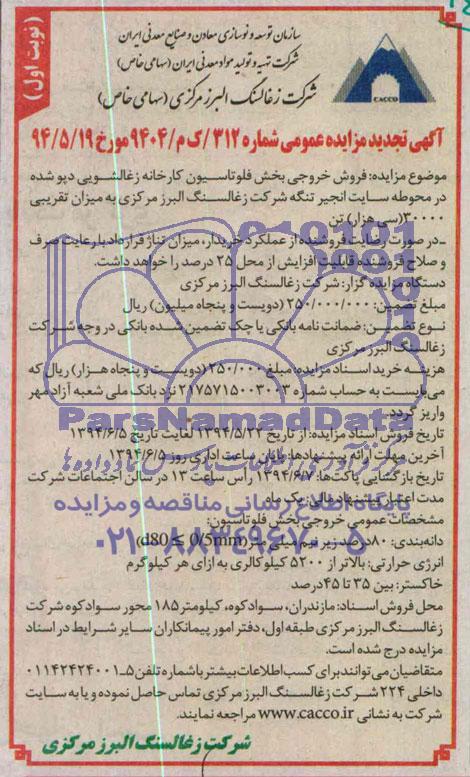 (نوبت اول)
سازمان توسعه و نوسازی معادن و صنایع معدنی ایران
شرکت تهیه و تولید مواد معدنی ایران (سهامی خاص)
شرکت زغالسنگ البرز مرکزی (سهامی خاص)
CACCO
آگهی تجدید مزایده عمومی شماره ۳۱۲/ک م/۹۴۰۴ مورخ ۹۴/۵/۱۹
موضوع مزایده: فروش خروجی بخش فلوتاسیون کارخانه زغالشویی دپو شده
در محوطه سایت انجیر تنگه شرکت زغالسنگ البرز مرکزی به میزان تقریبی
۳۰۰۰۰(سی هزار) تن
ـ در صورت رضایت فروشنده از عملکرد خریدار، میزان تناژ قرارداد با رعایت صرف
و صلاح فروشنده قابلیت افزایش از محل ۲۵ درصد را خواهد داشت.
دستگاه مزایده گزار: شرکت زغالسنگ البرز مرکزی
مبلغ تضمین: ۲۵۰/۰۰۰/۰۰۰ (دویست و پنجاه میلیون) ریال
نوع تضمین: ضمانت نامه بانکی یا چک تضمین شده بانکی در وجه شرکت
زغالسنگ البرز مرکزی
هزینه خرید اسناد مزایده: مبلغ ۲۵۰/۰۰۰ (دویست و پنجاه هزار) ریال که
می‌بایست به حساب شماره ۲۱۷۵۷۱۵۰۰۳۰۰۳ نزد بانک ملی شعبه آزادمهر
واریز گردد.
تاریخ فروش اسناد مزایده: از تاریخ ۱۳۹۴/۵/۲۲ لغایت تاریخ ۱۳۹۴/۶/۵
آخرین مهلت ارائه پیشنهادها: پایان ساعت اداری روز ۱۳۹۴/۶/۵
تاریخ بازگشایی پاکت‌ها: ۱۳۹۴/۶/۷ رأس ساعت ۱۳ در سالن اجتماعات شرکت
مدت اعتبار پیشنهاد مالی: یک ماه
مشخصات عمومی خروجی بخش فلوتاسیون:
دانه‌بندی: ۸۰ درصد زیر نیم میلی متر (d80 ≤ 0/5mm)
انرژی حرارتی: بالاتر از ۵۲۰۰ کیلوکالری به ازای هر کیلوگرم
خاکستر: بین ۳۵ تا ۴۵ درصد
محل فروش اسناد: مازندران، سوادکوه، کیلومتر ۱۸۵ محور سوادکوه شرکت
زغالسنگ البرز مرکزی طبقه اول، دفتر امور پیمانکاران سایر شرایط در اسناد
مزایده درج شده است.
متقاضیان می‌توانند برای کسب اطلاعات بیشتر با شماره تلفن ۵ـ۰۱۱۴۲۴۲۴۰۰۱
داخلی ۲۲۴ شرکت زغالسنگ البرز مرکزی تماس حاصل نموده و یا به سایت
شرکت به نشانی www.cacco.ir مراجعه نمایند.
شرکت زغالسنگ البرز مرکزی
ParsNamadData
پایگاه اطلاع رسانی مناقصه و مزایده
۰۲۱-۸۸۳۴۹۶۷۰-۵